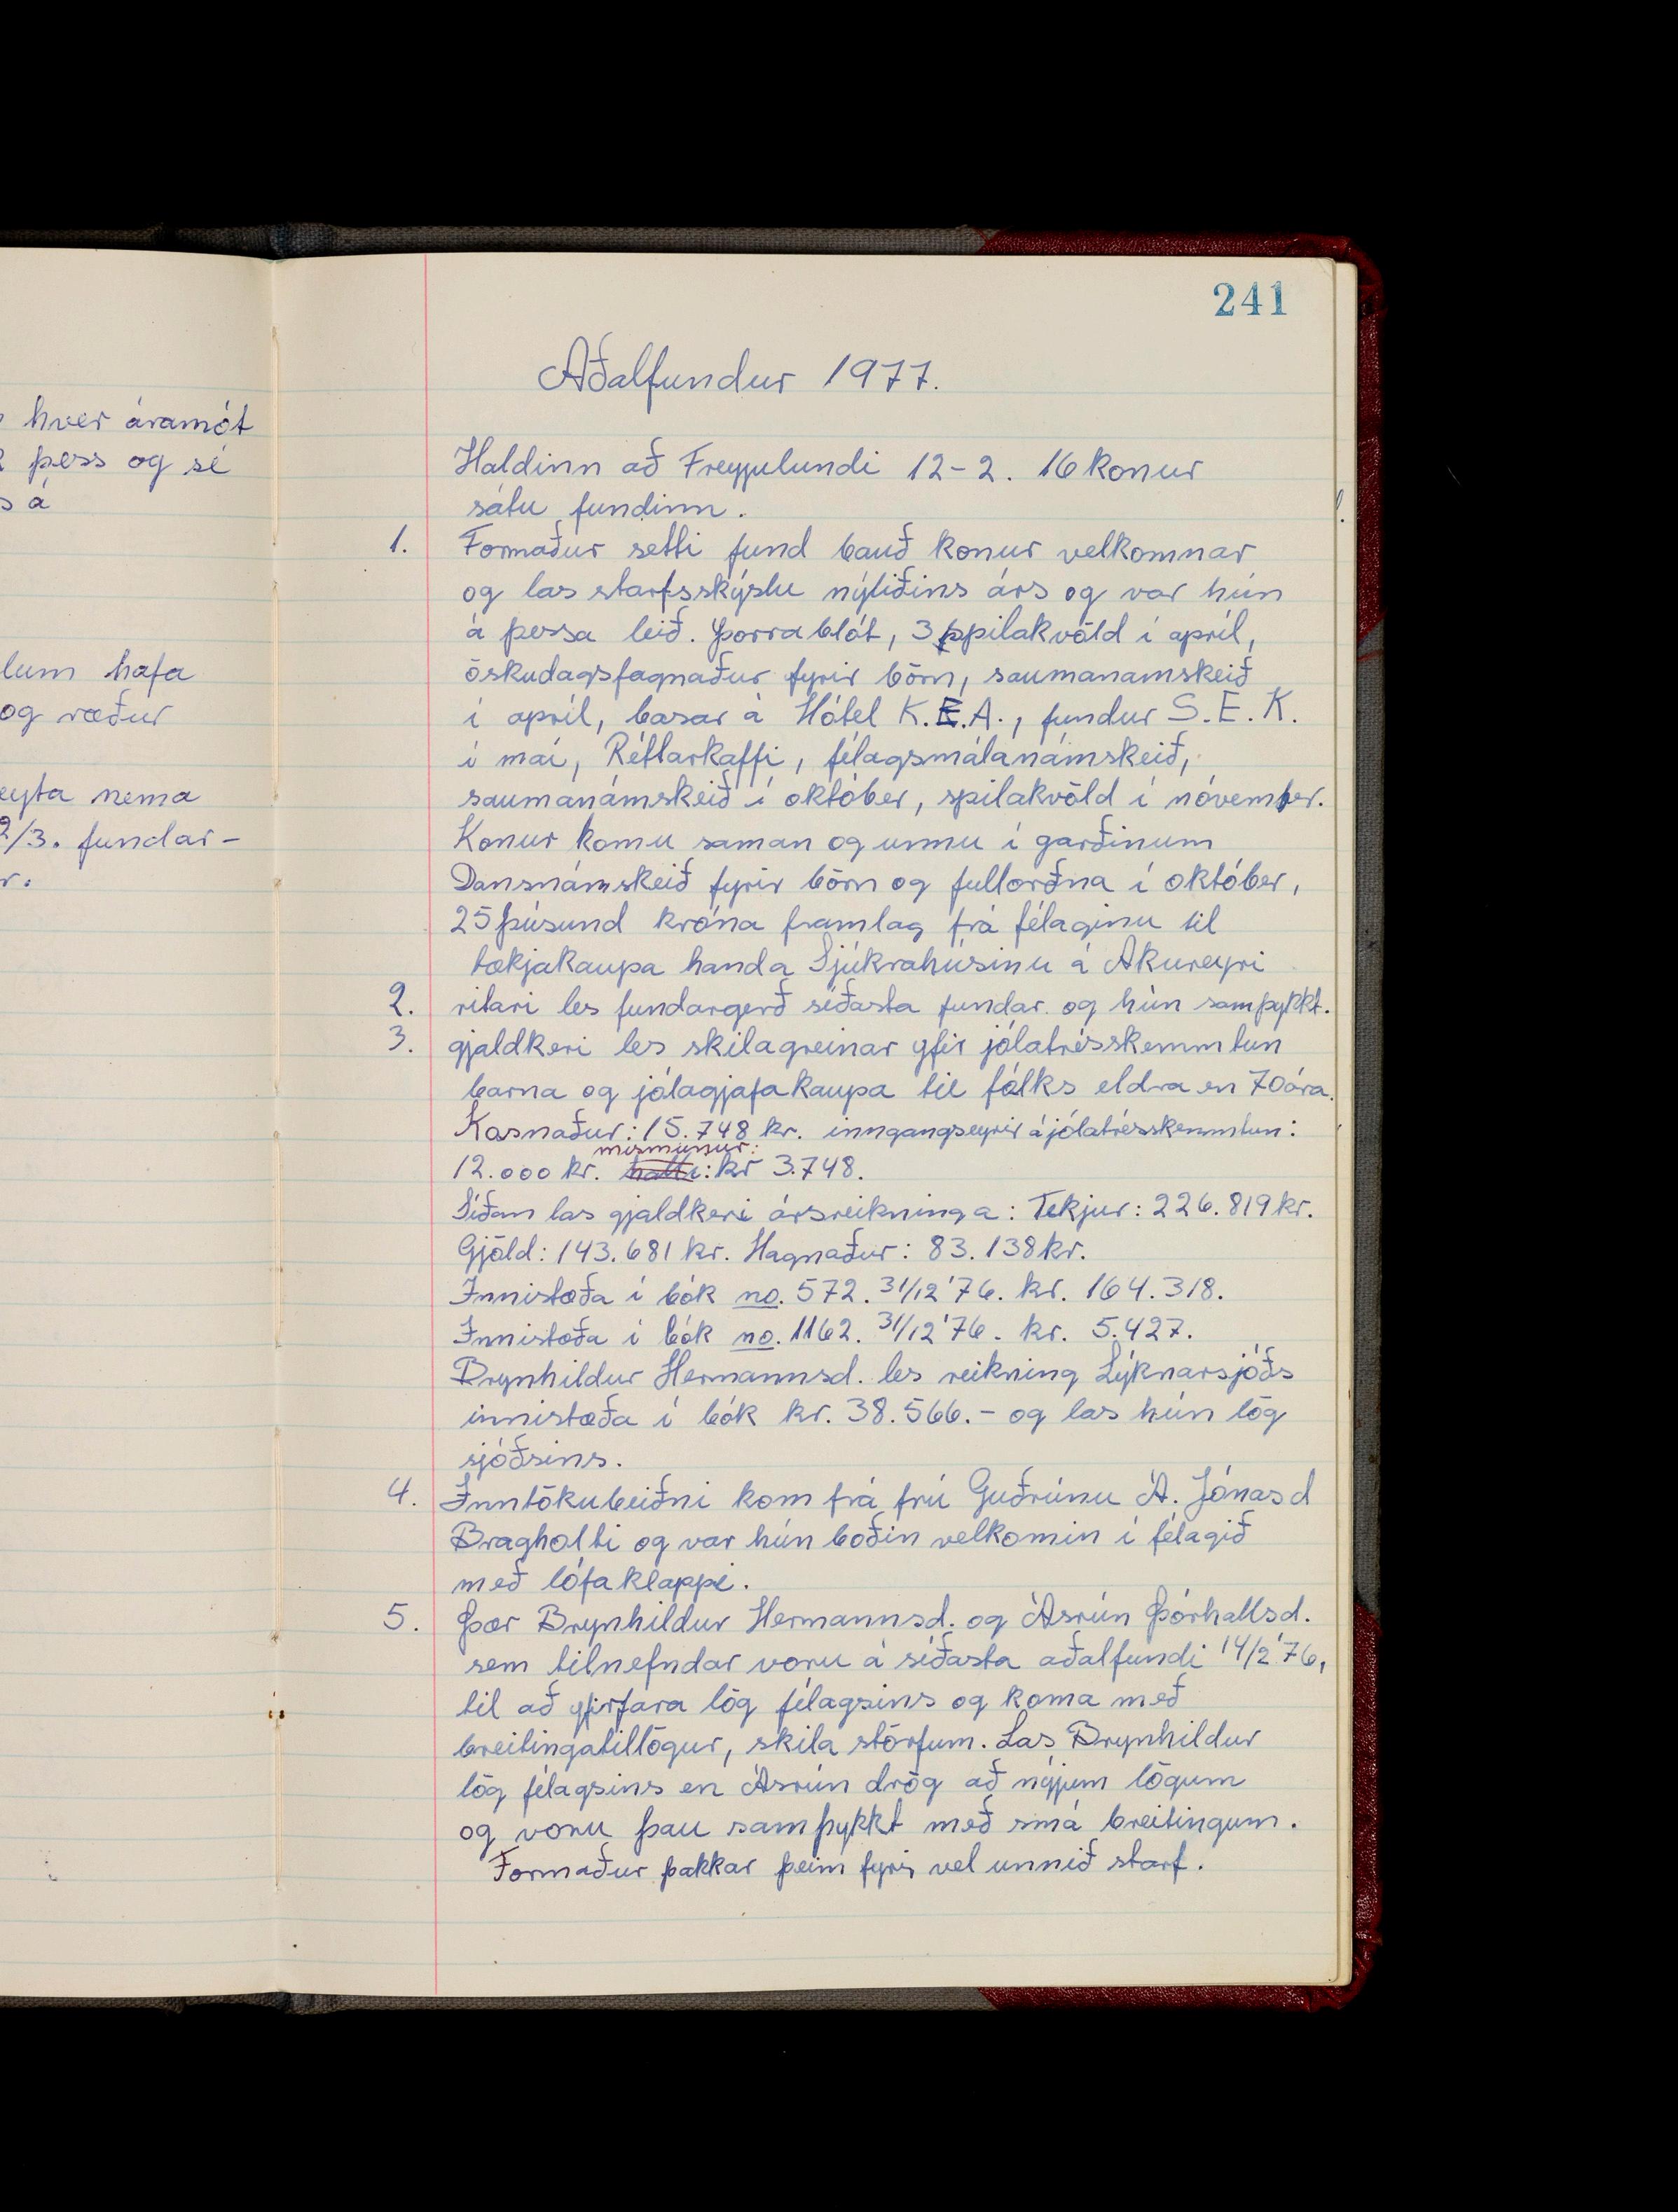 hver áramót
þess og sé
s á
lum hafa
og ræður
eyta nema
2/3. fundar-
r.
241
Aðalfundur 1977.
Haldinn að Freyjulundi 12-2. 16 konur
sátu fundinn.
1. Formaður setti fund bauð konur velkomnar
og las starfsskýslu nýliðins árs og var hún
á þessa leið. Þorrablót, 3 spilakvöld í apríl,
öskudagsfagnaður fyrir börn, saumanamskeið
í apríl, basar á Hótel K.E.A., fundur S.E.K.
í maí, Réttarkaffi, félagsmálanámskeið,
saumanámskeið í október, spilakvöld í nóvember.
Konur komu saman og unnu í garðinum
Dansnámskeið fyrir börn og fullorðna í október,
25 þúsund króna framlag frá félaginu til
tækjakaupa handa Sjúkrahúsinu á Akureyri
2. ritari les fundargerð síðasta fundar og hún samþykkt.
3. gjaldkeri les skilagreinar yfir jólatrésskemmtun
barna og jólagjafakaupa til fólks eldra en 70 ára.
Kosnaður: 15.748 kr. inngangseyrir á jólatrésskemmtun:
mismunur:
12.000 kr. halli: kr 3.748.
Síðan las gjaldkeri ársreikninga: Tekjur: 226.819 kr.
Gjöld: 143.681 kr. Hagnaður: 83.138 kr.
Innistæða í bók no. 572. 31/12'76. kr. 164.318.
Innistæða í bók no. 1162. 31/12'76. kr. 5.427.
Brynhildur Hermannsd. les reikning Lýknarsjóðs
innistæða í bók kr. 38.566.- og las hún lög
sjóðsins.
4. Inntökubeiðni kom frá frú Guðrúnu Á. Jónasd
Bragholti og var hún boðin velkomin í félagið
með lófaklappi.
5. Þær Brynhildur Hermannsd. og Ásrún Þórhallsd.
sem tilnefndar voru á síðasta aðalfundi 14/2'76,
til að yfirfara lög félagsins og koma með
breitingatillögur, skila störfum. Las Brynhildur
lög félagsins en Ásrún drög að nýjum lögum
og voru þau samþykkt með smá breitingum.
Formaður þakkar þeim fyrir vel unnið starf.